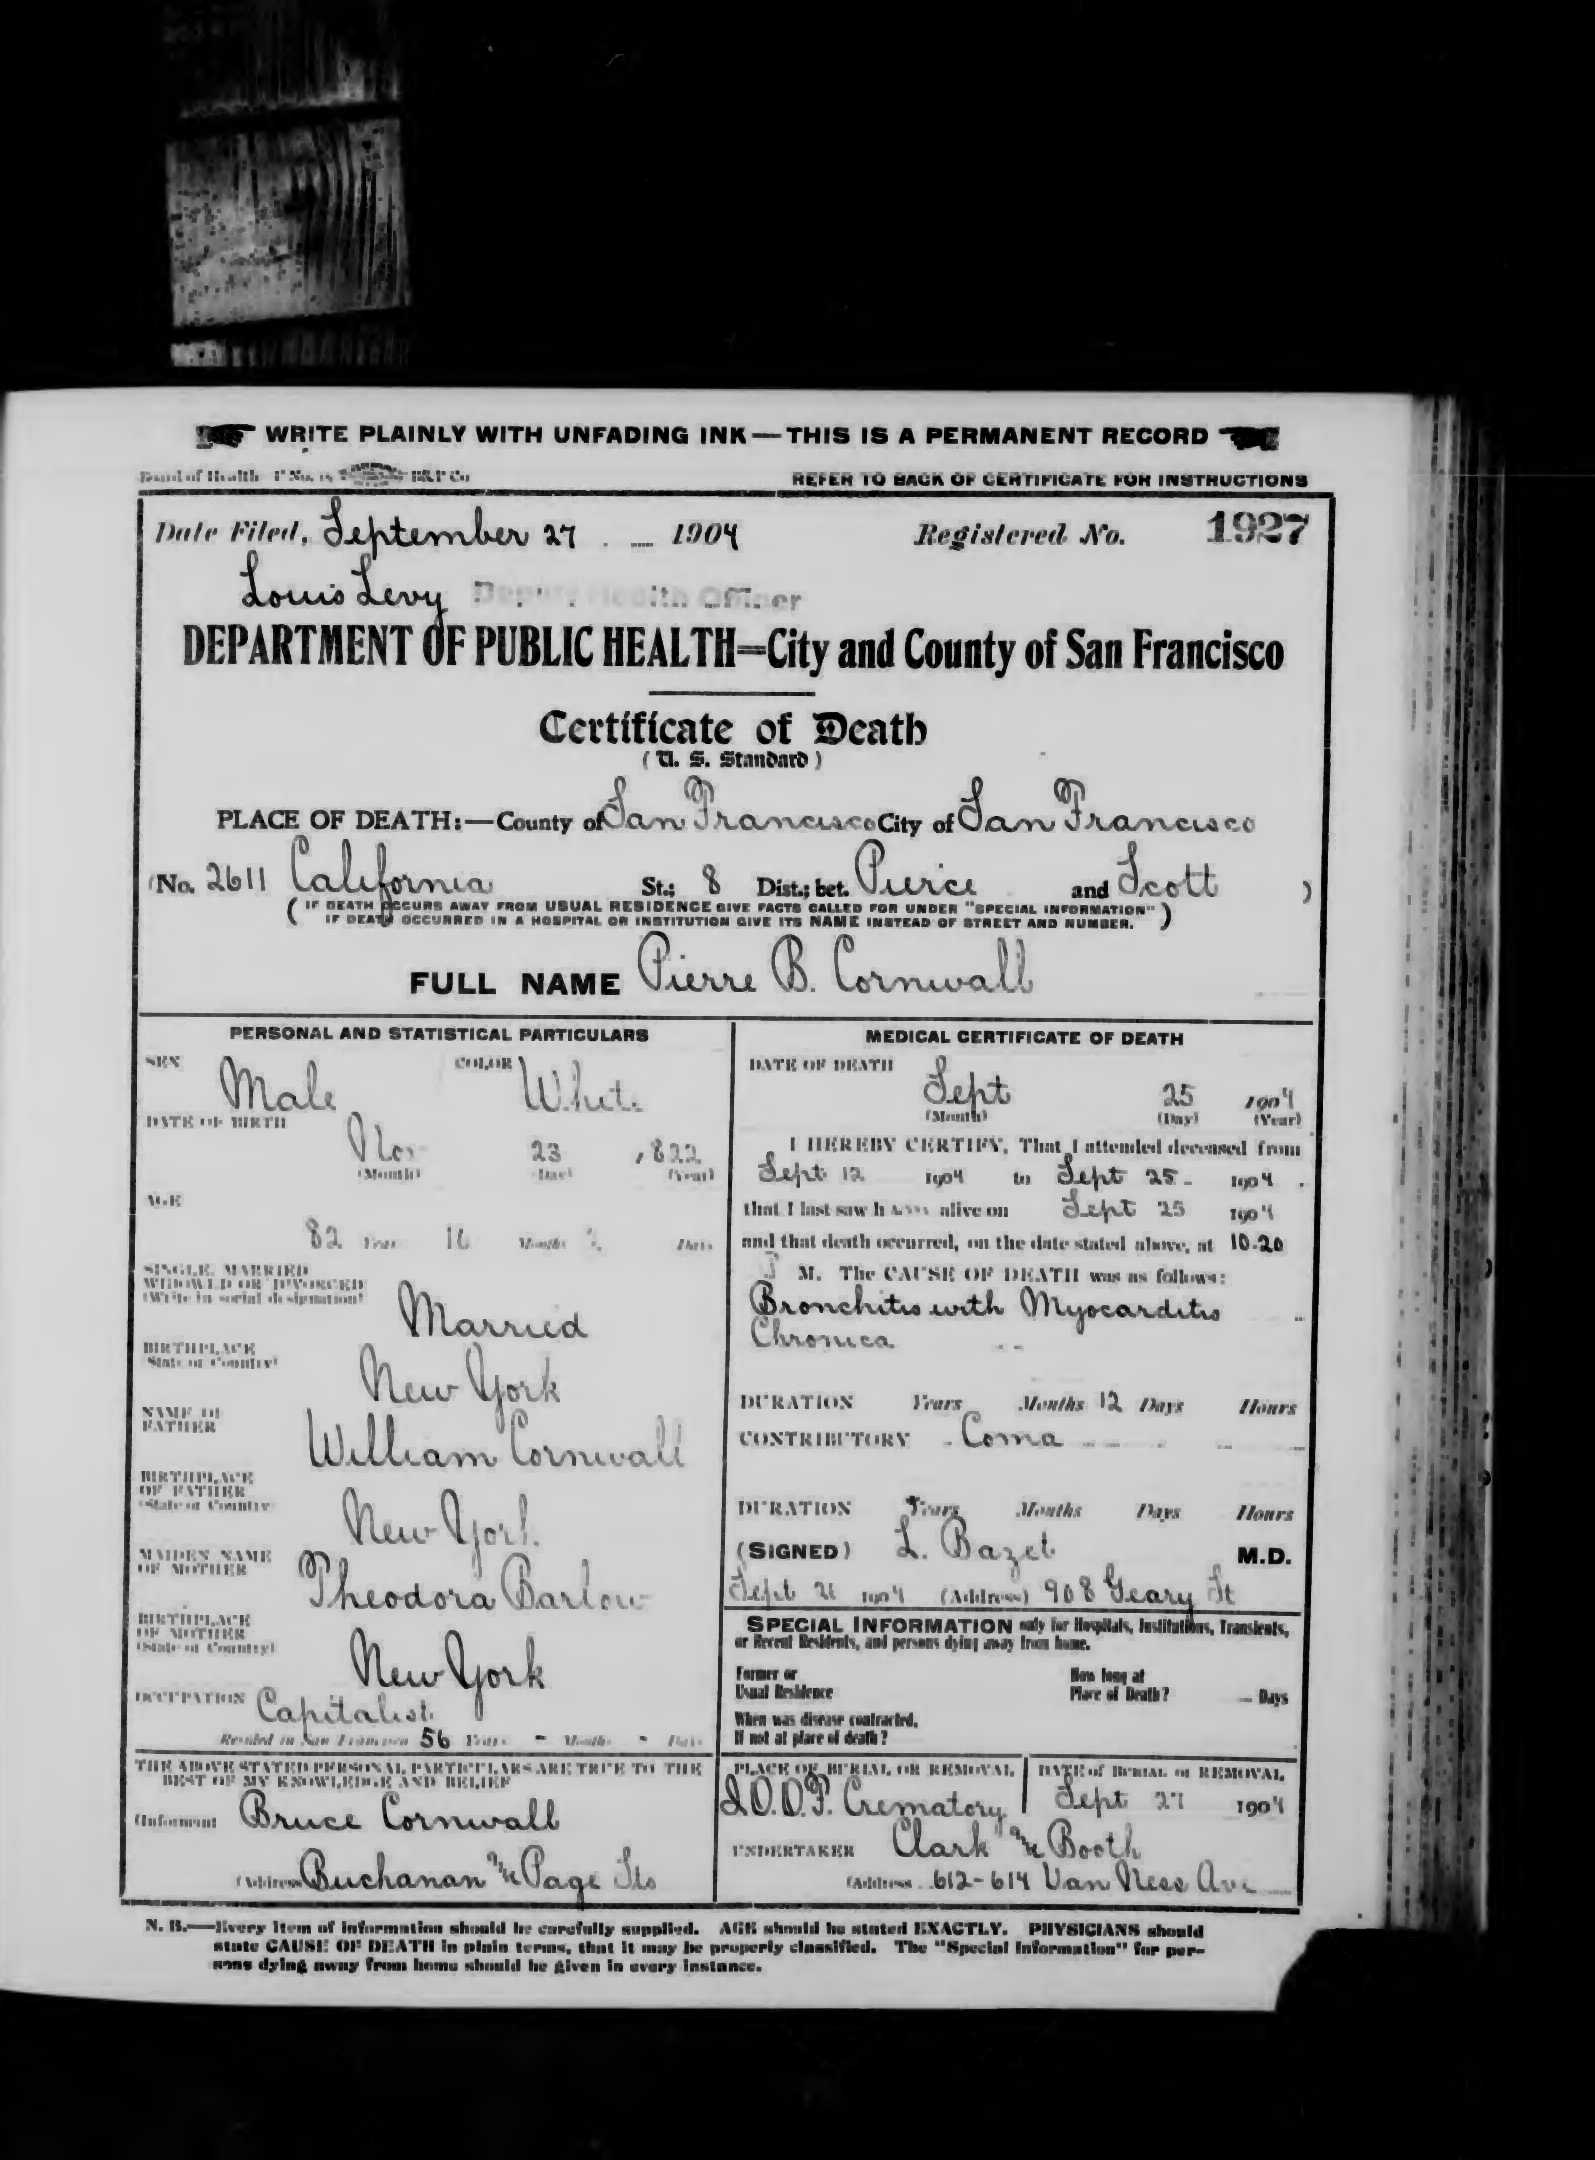 WRITE PLAINLY WITH UNFADING INK—THIS IS A PERMANENT RECORD
Board of Health
REFER TO BACK OF CERTIFICATE FOR INSTRUCTIONS
Date Filed, September 27 1904 Registered No. 1927
Louis Levy Deputy Health Officer
DEPARTMENT OF PUBLIC HEALTH=City and County of San Francisco
Certificate of Death
(U. S. Standard)
PLACE OF DEATH:—County of San Francisco City of San Francisco
(No. 2611 California St.; 8 Dist.; bet. Pierce and Scott )
( IF DEATH OCCURS AWAY FROM USUAL RESIDENCE GIVE FACTS CALLED FOR UNDER "SPECIAL INFORMATION"
IF DEATH OCCURRED IN A HOSPITAL OR INSTITUTION GIVE ITS NAME INSTEAD OF STREET AND NUMBER. )
FULL NAME Pierre B. Cornwall
PERSONAL AND STATISTICAL PARTICULARS
SEX Male COLOR White
DATE OF BIRTH
Nov 23 1822
(Month) (Day) (Year)
AGE
82 Years 10 Months Days
SINGLE, MARRIED
WIDOWED OR DIVORCED
(Write in social designation)
Married
BIRTHPLACE
(State or Country)
New York
NAME OF
FATHER
William Cornwall
BIRTHPLACE
OF FATHER
(State or Country)
New York
MAIDEN NAME
OF MOTHER
Theodora Barlow
BIRTHPLACE
OF MOTHER
(State or Country)
New York
OCCUPATION Capitalist
Resided in San Francisco 56 Years - Months - Days
THE ABOVE STATED PERSONAL PARTICULARS ARE TRUE TO THE
BEST OF MY KNOWLEDGE AND BELIEF
(Informant Bruce Cornwall
(Address Buchanan & Page Sts
MEDICAL CERTIFICATE OF DEATH
DATE OF DEATH
Sept 25 1904
(Month) (Day) (Year)
I HEREBY CERTIFY, That I attended deceased from
Sept 12 1904 to Sept 25 1904
that I last saw him alive on Sept 25 1904
and that death occurred, on the date stated above, at 10.20
M. The CAUSE OF DEATH was as follows:
Bronchitis with Myocarditis
Chronica
DURATION Years Months 12 Days Hours
CONTRIBUTORY Coma
DURATION Years Months Days Hours
(SIGNED) L. Bazet M.D.
Sept 26 1904 (Address) 908 Geary St
SPECIAL INFORMATION only for Hospitals, Institutions, Transients,
or Recent Residents, and persons dying away from home.
Former or
Usual Residence
How long at
Place of Death? Days
When was disease contracted,
If not at place of death?
PLACE OF BURIAL OR REMOVAL
I.O.O.F. Crematory
DATE of BURIAL or REMOVAL
Sept 27 1904
UNDERTAKER Clark & Booth
(Address 612-614 Van Ness Ave
N. B.—Every item of information should be carefully supplied. AGE should be stated EXACTLY. PHYSICIANS should
state CAUSE OF DEATH in plain terms, that it may be properly classified. The "Special Information" for per-
sons dying away from home should be given in every instance.